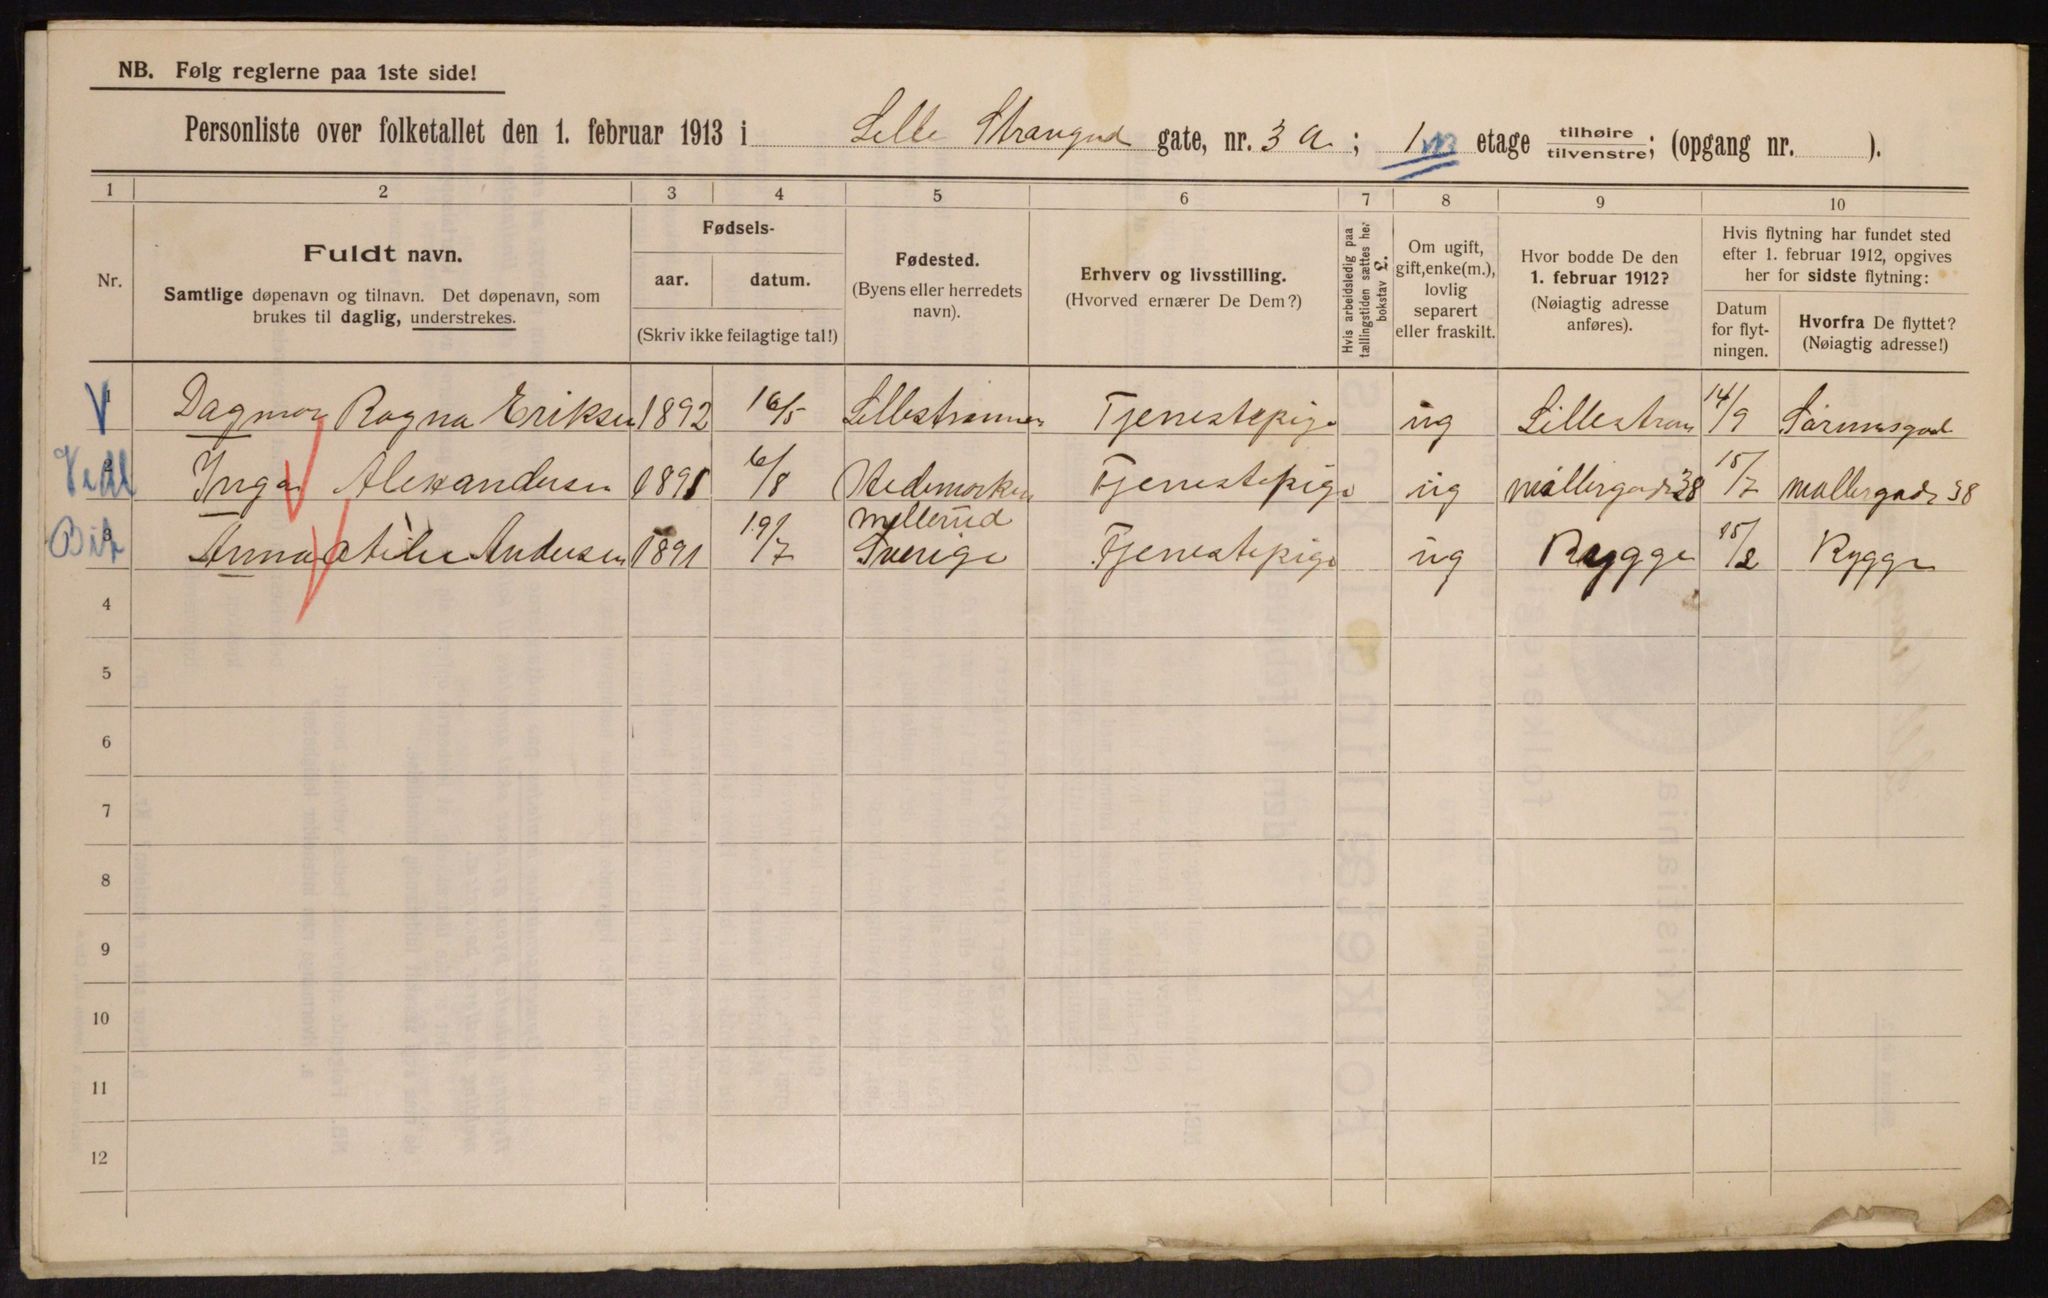 NB. Følg reglerne paa 1ste side!
Personliste over folketallet den 1. februar 1913 i Lille Strangad gate, nr. 3 a; 1ste etage tilhøire/tilvenstre; (opgang nr. ).
1 2 3 4 5 6 7 8 9 10
Nr.
Fuldt navn.
Samtlige døpenavn og tilnavn. Det døpenavn, som
brukes til daglig, understrekes.
Fødsels-
aar. datum.
(Skriv ikke feilagtige tal!)
Fødested.
(Byens eller herredets
navn).
Erhverv og livsstilling.
(Hvorved ernærer De Dem?)
Hvis arbeidsledig paa
tællingstiden sættes her
bokstav £.
Om ugift,
gift, enke(m.),
lovlig
separert
eller fraskilt.
Hvor bodde De den
1. februar 1912?
(Nøiagtig adresse
anføres).
Hvis flytning har fundet sted
efter 1. februar 1912, opgives
her for sidste flytning:
Datum
for flyt-
ningen.
Hvorfra De flyttet?
(Nøiagtig adresse!)
V 1 Dagmar Ragna Eriksen 1892 16/5 Lillestrømmen Tjenestepige ug Lillestrøm 14/9 Sørumsgad
2 Inga Alexandersen 1891 6/8 Hedemarken Tjenestepige ug møllergade 38 15/7 møllergade 38
3 Anna Andersen 1891 19/7 Mellerud Sverige Tjenestepige ug Rygge 15/2 Rygge
4
5
6
7
8
9
10
11
12